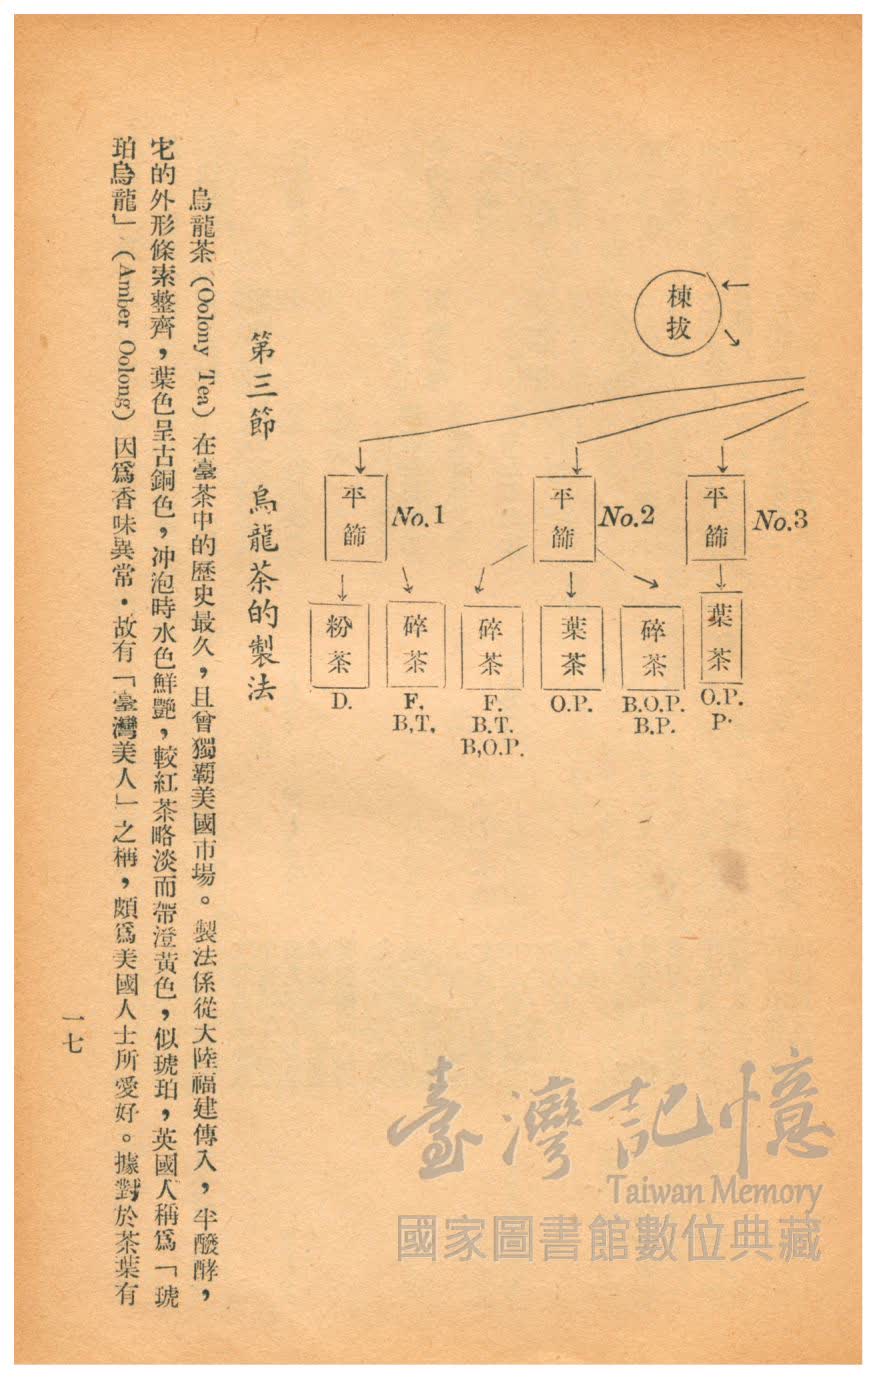 揀拔
平篩
No.3
平篩
No.2
平篩
No.1
葉茶
O.P.
P.
碎茶
B.O.P.
B.P.
葉茶
O.P.
碎茶
F.
B.T.
B,O.P.
碎茶
F,
B,T,
粉茶
D.
第三節　烏龍茶的製法
烏龍茶（Oolony Tea）在臺茶中的歷史最久，且曾獨霸美國市場。製法係從大陸福建傳入，半醱酵，
牠的外形條索整齊，葉色呈古銅色，冲泡時水色鮮艷，較紅茶略淡而帶澄黃色，似琥珀，英國人稱爲「琥
珀烏龍」（Amber Oolong）因爲香味異常．故有「臺灣美人」之稱，頗爲美國人士所愛好。據對於茶葉有
一七
臺灣記憶
Taiwan Memory
國家圖書館數位典藏